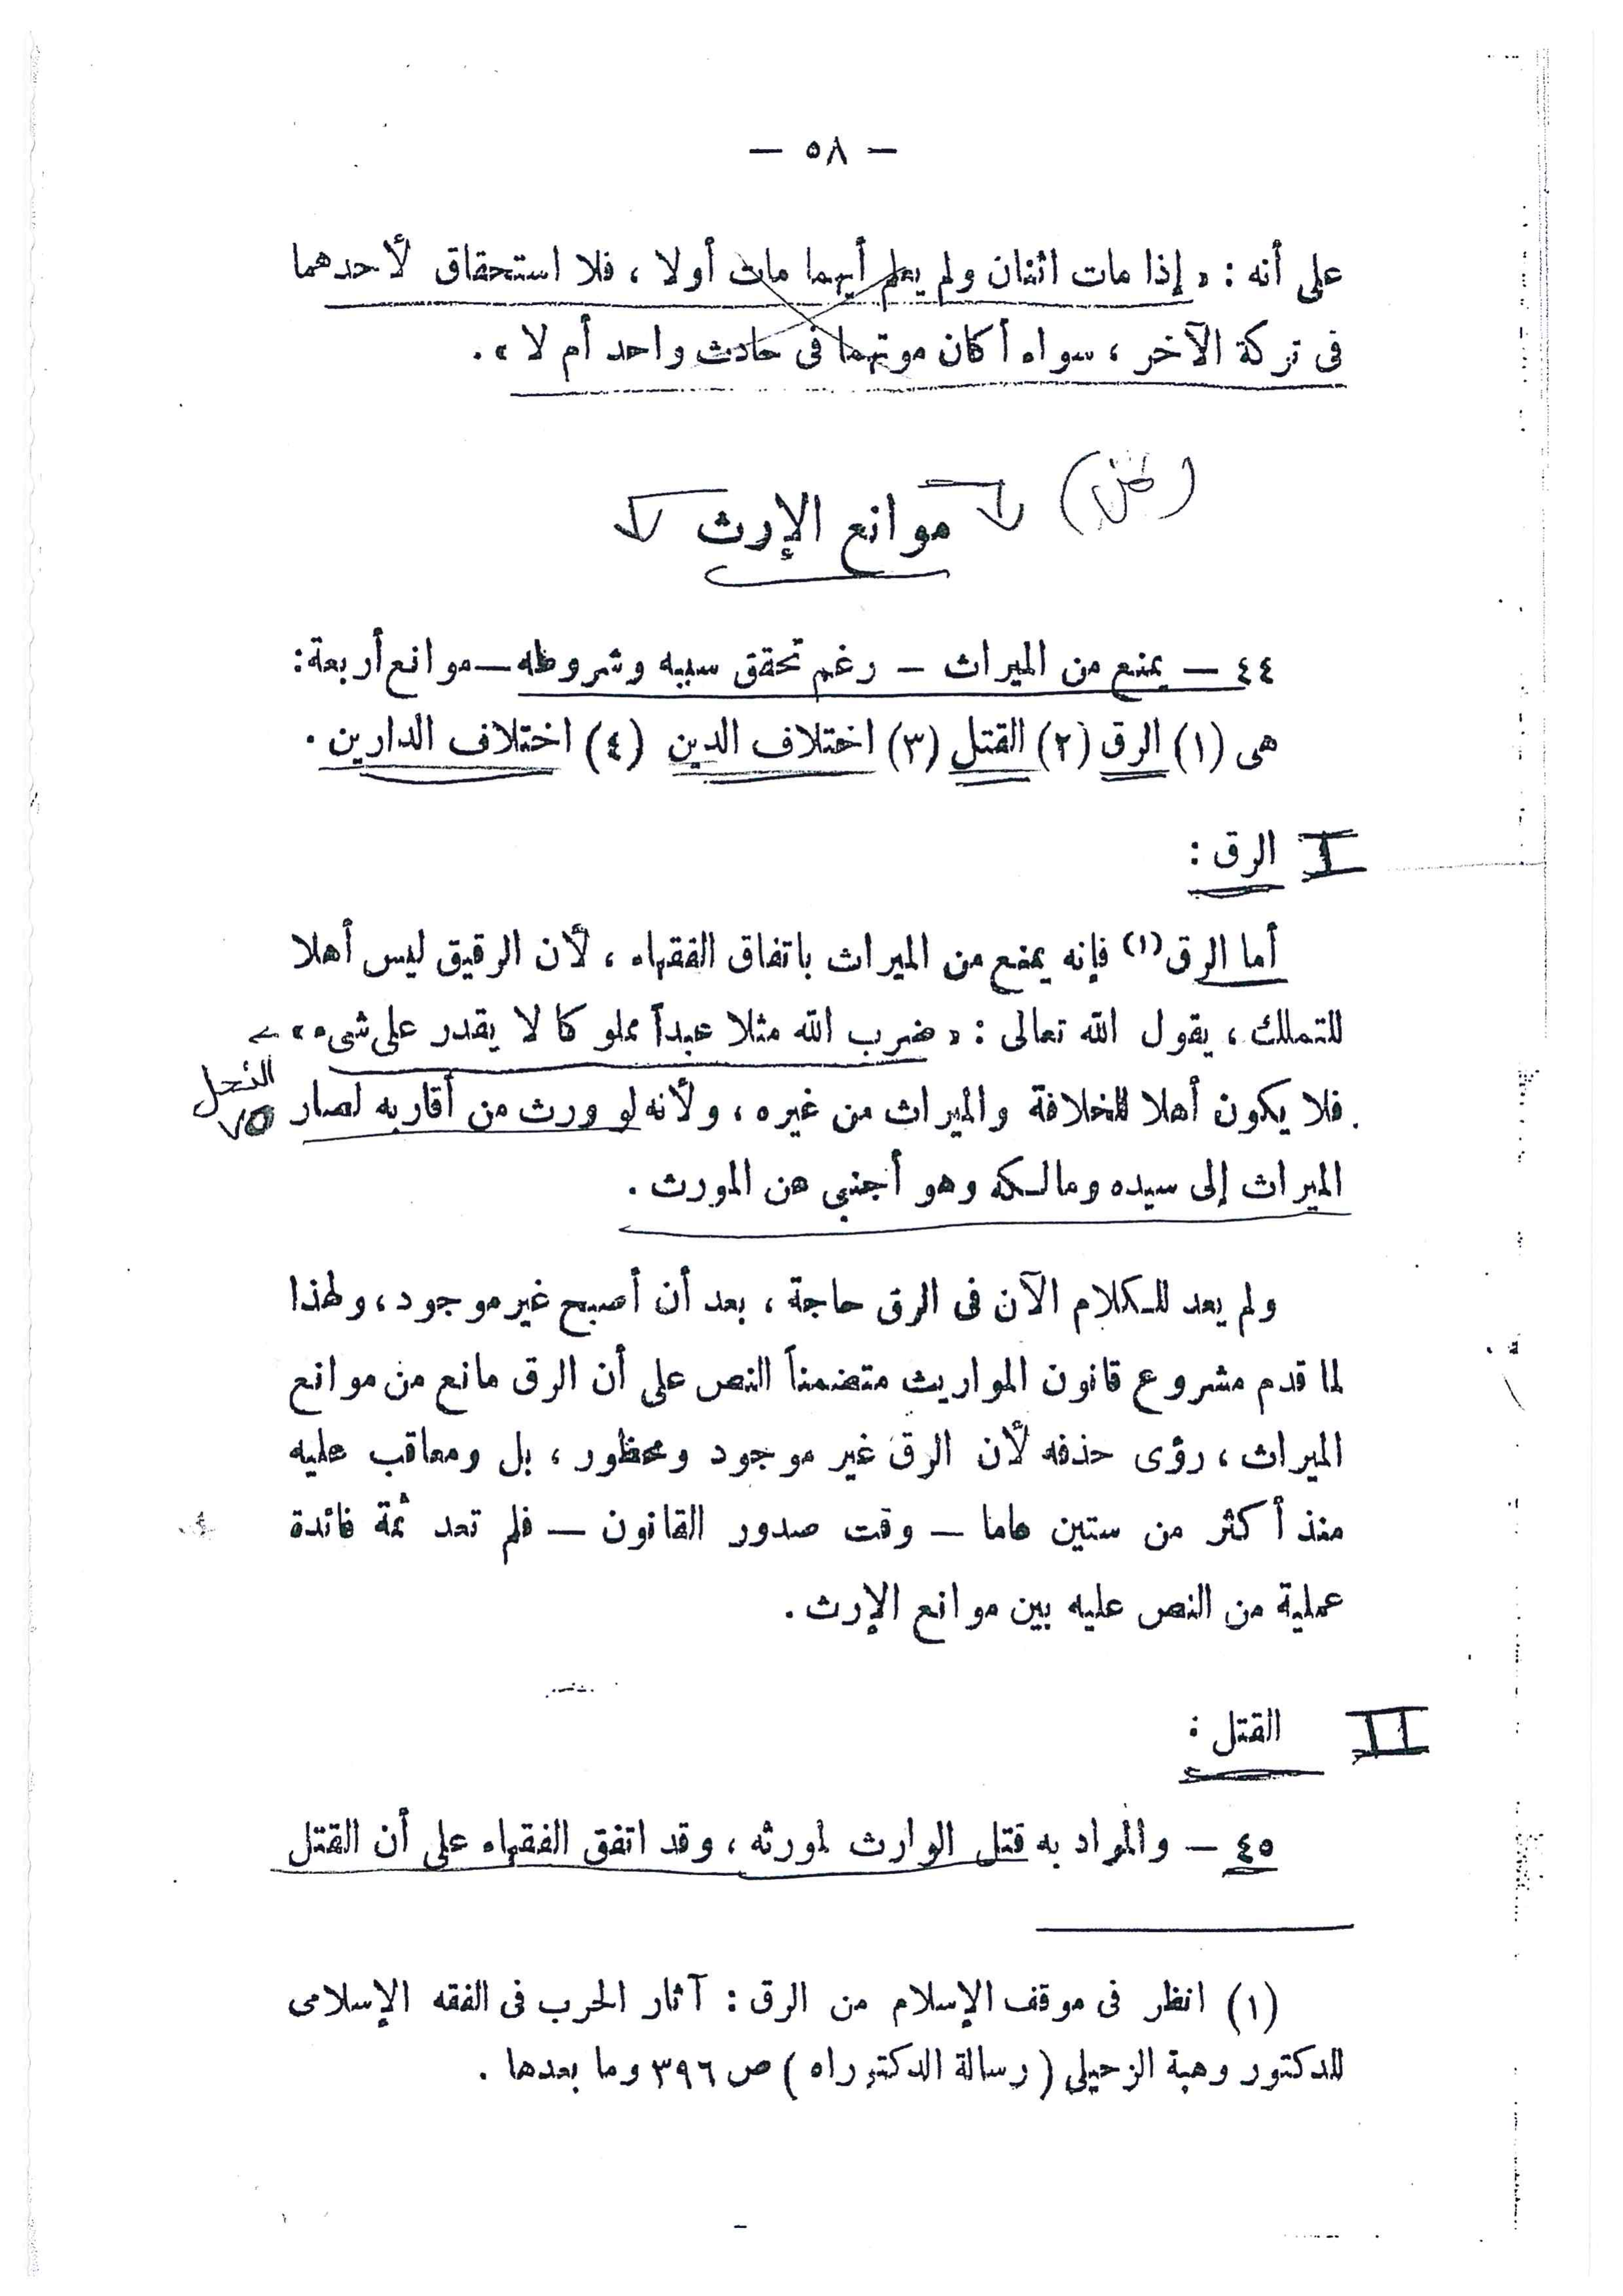 — ٥٨ —
على أنه : « إذا مات اثنان ولم يعلم أيهما مات أولا ، فلا استحقاق لأحدهما
فى تركة الآخر ، سواء أكان موتهما فى حادث واحد أم لا » .
موانع الإرث
٤٤ — يمنع من الميراث — رغم تحقق سببه وشروطه — موانع أربعة :
هى (١) الرق (٢) القتل (٣) اختلاف الدين (٤) اختلاف الدارين .
I الرق :
أما الرق (١) فإنه يمنع من الميراث باتفاق الفقهاء ، لأن الرقيق ليس أهلا
للتملك ، يقول الله تعالى : « ضرب الله مثلا عبداً مملوكا لا يقدر على شىء »
النحل
٧٥
فلا يكون أهلا للخلافة والميراث من غيره ، ولأنه لو ورث من أقاربه لصار
الميراث إلى سيده ومالكه وهو أجنبى عن المورث .
ولم يعد للكلام الآن فى الرق حاجة ، بعد أن أصبح غير موجود ، ولهذا
لما قدم مشروع قانون المواريث متضمناً النص على أن الرق مانع من موانع
الميراث ، رؤى حذفه لأن الرق غير موجود ومحظور ، بل ومعاقب عليه
منذ أكثر من ستين عاما — وقت صدور القانون — فلم تعد ثمة فائدة
عملية من النص عليه بين موانع الإرث .
II القتل :
٤٥ — والمراد به قتل الوارث لمورثه ، وقد اتفق الفقهاء على أن القتل
(١) انظر فى موقف الإسلام من الرق : آثار الحرب فى الفقه الإسلامى
للدكتور وهبة الزحيلى ( رسالة الدكتوراه ) ص ٣٩٦ وما بعدها .